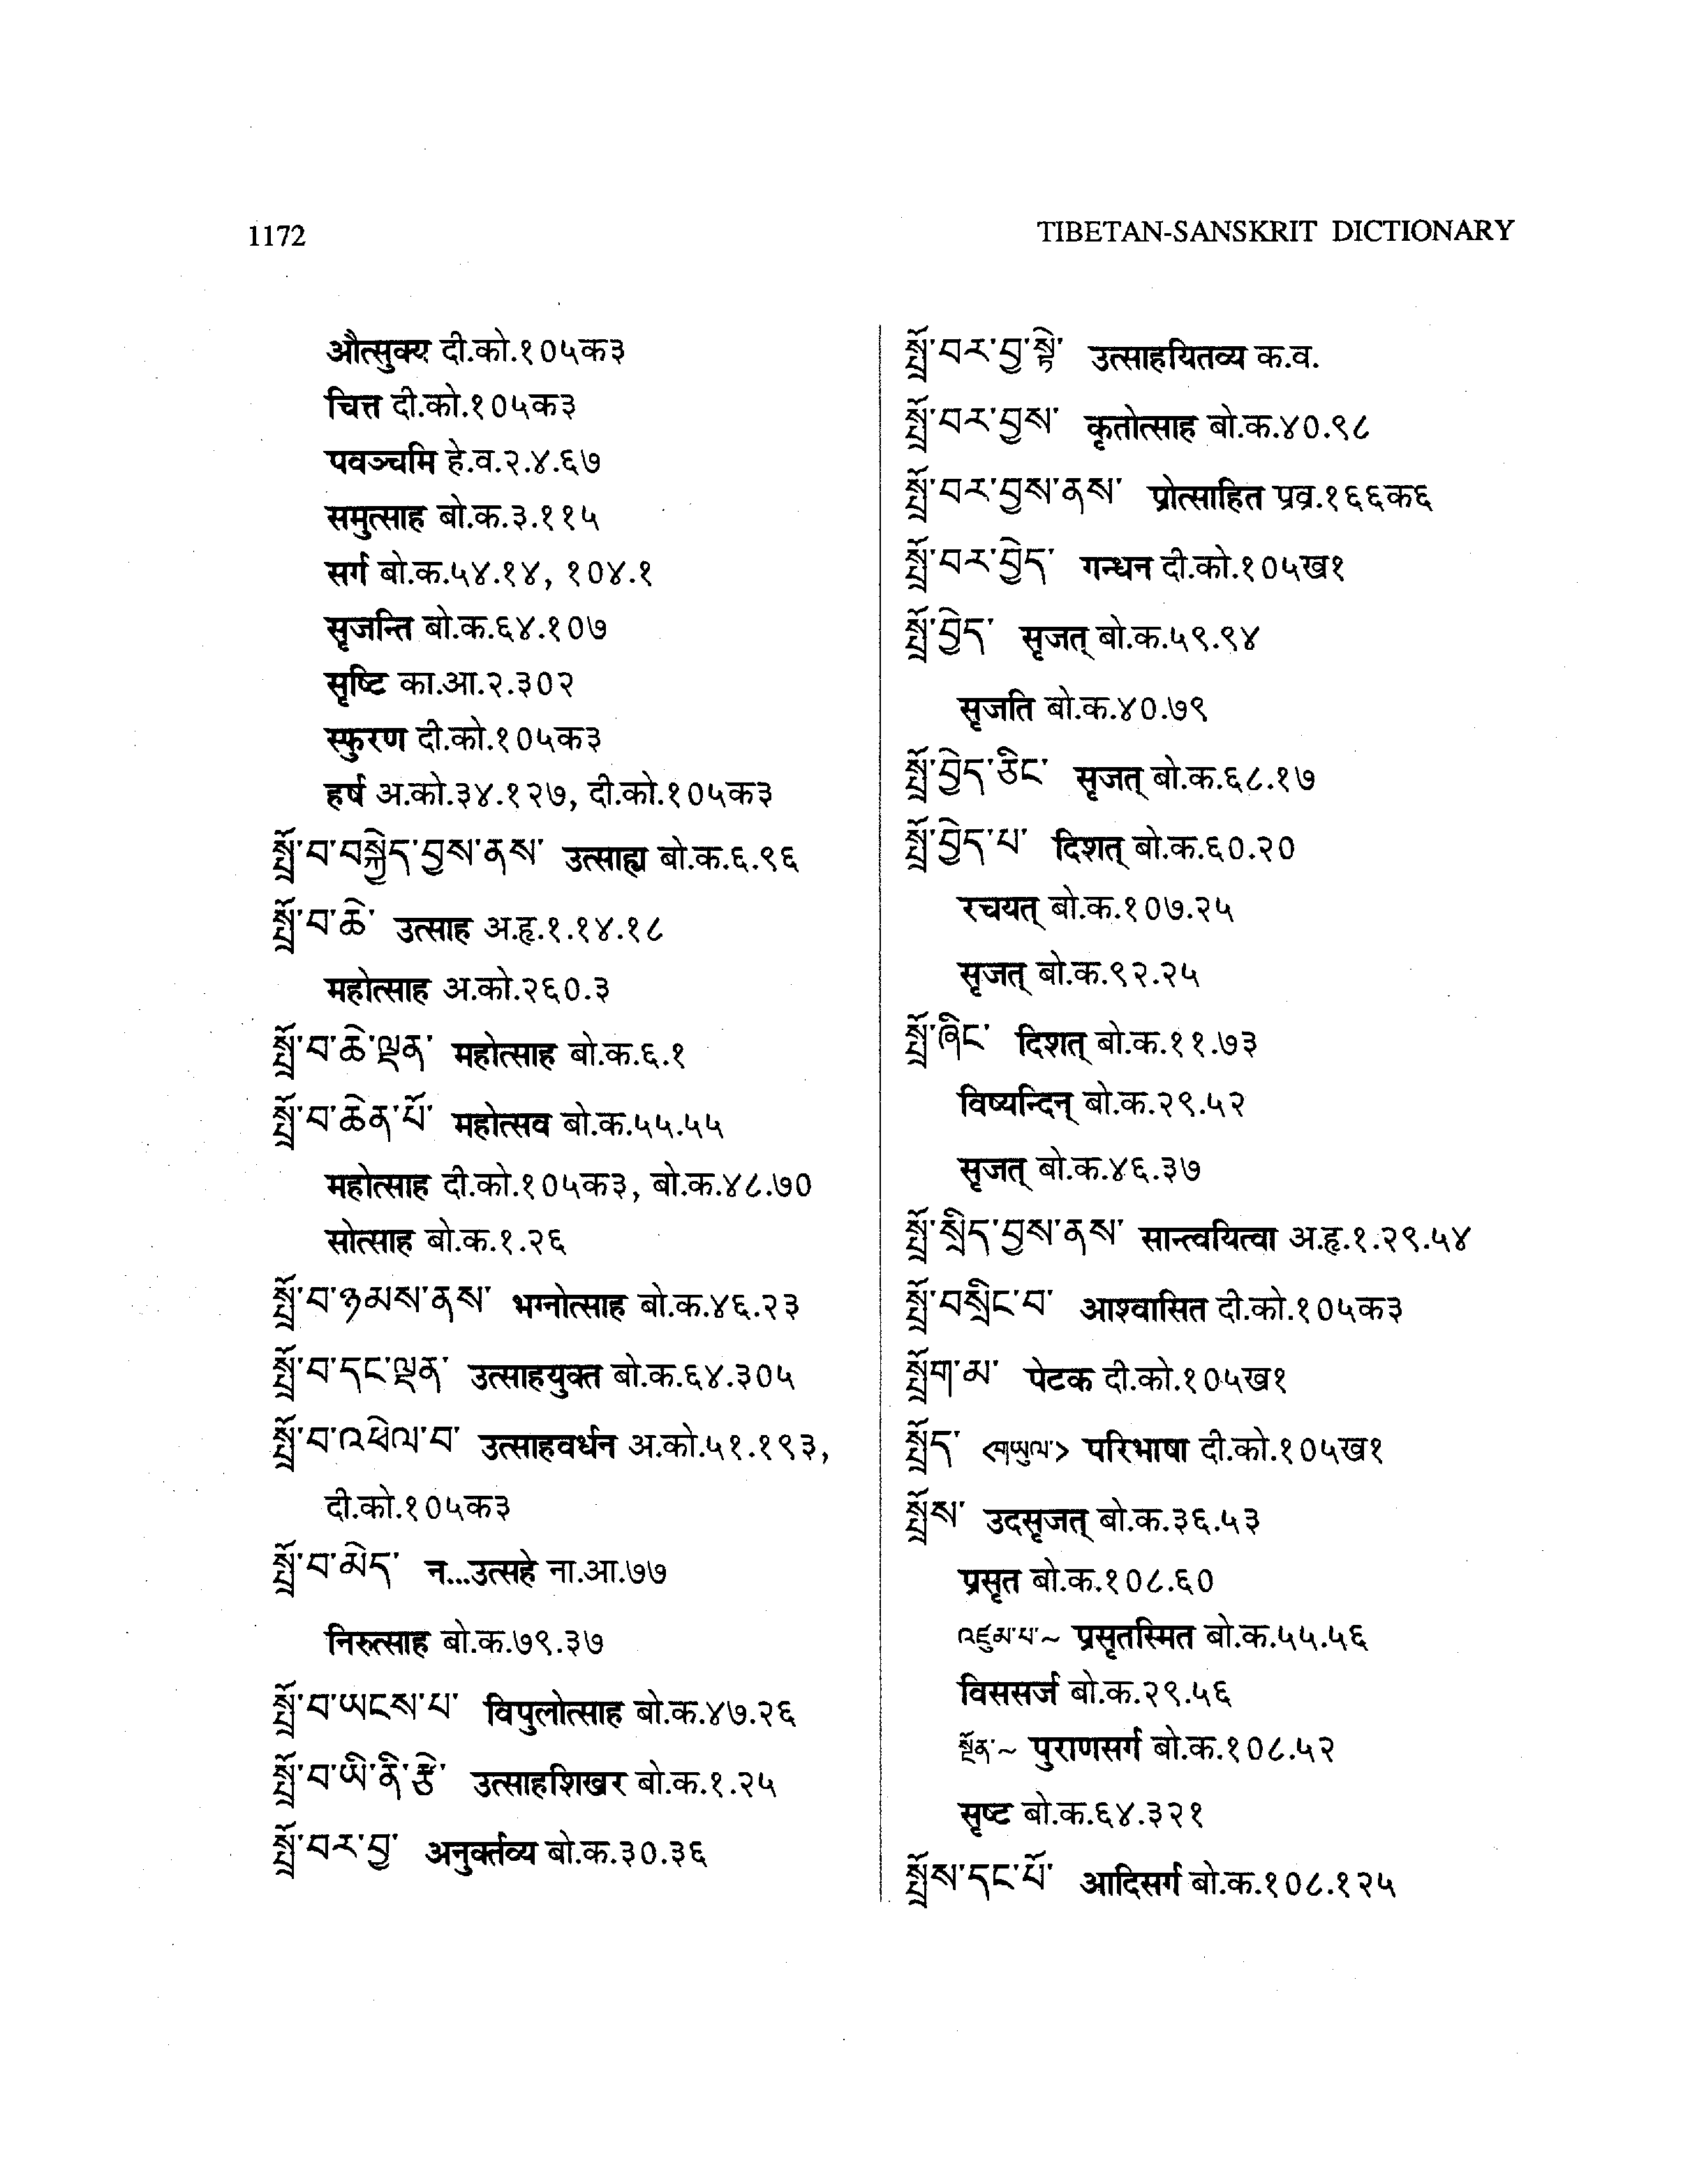 1172
TIBETAN-SANSKRIT DICTIONARY
औत्सुक्य दी.को.१०५क३
चित्त दी.को.१०५क३
पवञ्चमि हे.व.२.४.६७
समुत्साह बो.क.३.११५
सर्ग बो.क.५४.१४, १०४.१
सृजन्ति बो.क.६४.१०७
सृष्टि का.आ.२.३०२
स्फुरण दी.को.१०५क३
हर्ष अ.को.३४.१२७, दी.को.१०५क३
སྤྲོ་བ་བསྐྱེད་བྱས་ནས་ उत्साह्य बो.क.६.९६
སྤྲོ་བ་ཆེ་ उत्साह अ.हृ.१.१४.१८
महोत्साह अ.को.२६०.३
སྤྲོ་བ་ཆེ་ལྡན་ महोत्साह बो.क.६.१
སྤྲོ་བ་ཆེན་པོ་ महोत्सव बो.क.५५.५५
महोत्साह दी.को.१०५क३, बो.क.४८.७०
सोत्साह बो.क.१.२६
སྤྲོ་བ་ཉམས་ནས་ भग्नोत्साह बो.क.४६.२३
སྤྲོ་བ་དང་ལྡན་ उत्साहयुक्त बो.क.६४.३०५
སྤྲོ་བ་འཕེལ་བ་ उत्साहवर्धन अ.को.५१.१९३,
दी.को.१०५क३
སྤྲོ་བ་མེད་ न...उत्सहे ना.आ.७७
निरुत्साह बो.क.७९.३७
སྤྲོ་བ་ཡངས་པ་ विपुलोत्साह बो.क.४७.२६
སྤྲོ་བ་ཡི་ནི་རྩེ་ उत्साहशिखर बो.क.१.२५
སྤྲོ་བར་བྱ་ अनुर्क्तव्य बो.क.३०.३६
སྤྲོ་བར་བྱ་སྟེ་ उत्साहयितव्य क.व.
སྤྲོ་བར་བྱས་ कृतोत्साह बो.क.४०.९८
སྤྲོ་བར་བྱས་ནས་ प्रोत्साहित प्रव्र.१६६क६
སྤྲོ་བར་བྱེད་ गन्धन दी.को.१०५ख१
སྤྲོ་བྱེད་ सृजत् बो.क.५९.९४
सृजति बो.क.४०.७९
སྤྲོ་བྱེད་ཅིང་ सृजत् बो.क.६८.१७
སྤྲོ་བྱེད་པ་ दिशत् बो.क.६०.२०
रचयत् बो.क.१०७.२५
सृजत् बो.क.९२.२५
སྤྲོ་ཞིང་ दिशत् बो.क.११.७३
विष्यन्दिन् बो.क.२९.५२
सृजत् बो.क.४६.३७
སྤྲོ་སྲིད་བྱས་ནས་ सान्त्वयित्वा अ.हृ.१.२९.५४
སྤྲོ་བསྲིང་བ་ आश्वासित दी.को.१०५क३
སྤྲོག་མ་ पेटक दी.को.१०५ख१
སྤྲོད་ <གཡུལ་> परिभाषा दी.को.१०५ख१
སྤྲོས་ उदसृजत् बो.क.३६.५३
प्रसृत बो.क.१०८.६०
འཛུམ་པ་~ प्रसृतस्मित बो.क.५५.५६
विससर्ज बो.क.२९.५६
སྔོན་~ पुराणसर्ग बो.क.१०८.५२
सृष्ट बो.क.६४.३२१
སྤྲོས་དང་པོ་ आदिसर्ग बो.क.१०८.१२५